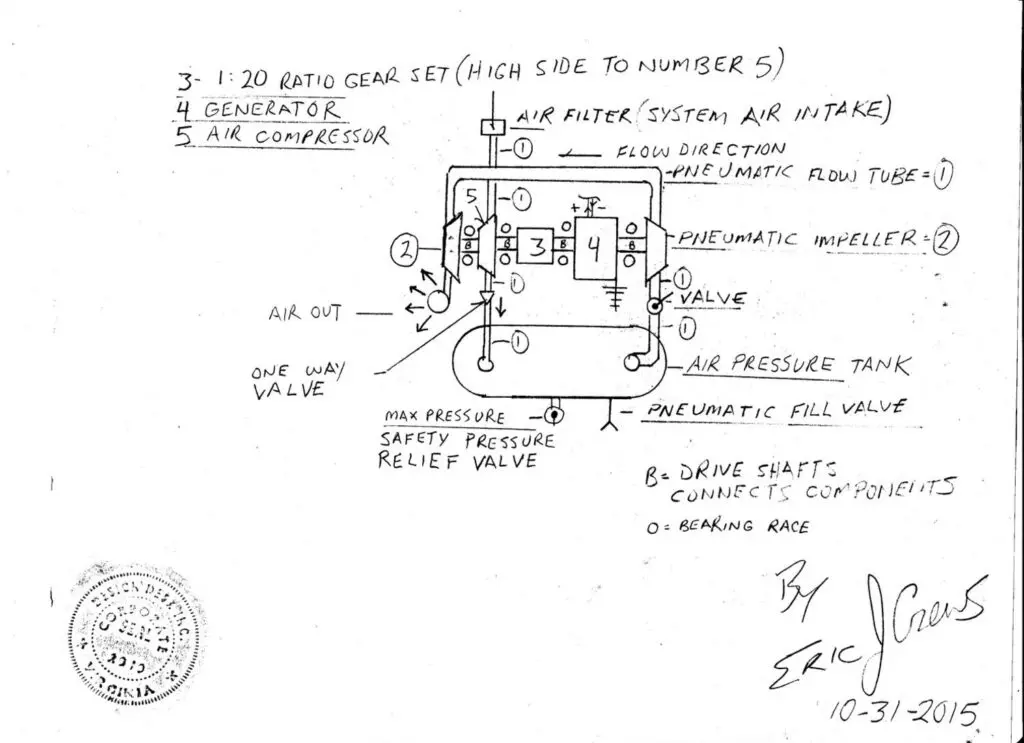 3- 1:20 RATIO GEAR SET (HIGH SIDE TO NUMBER 5)
4 GENERATOR
5 AIR COMPRESSOR
AIR FILTER (SYSTEM AIR INTAKE)
1
FLOW DIRECTION
PNEUMATIC FLOW TUBE = 1
5
1
+ -
2
B
B
3
B
4
B
PNEUMATIC IMPELLER = 2
1
1
VALVE
AIR OUT
1
1
ONE WAY
VALVE
AIR PRESSURE TANK
MAX PRESSURE
SAFETY PRESSURE
RELIEF VALVE
PNEUMATIC FILL VALVE
B = DRIVE SHAFTS
CONNECTS COMPONENTS
O = BEARING RACE
By
ERIC J Crews
10-31-2015
DESIGN DESK INC.
CORPORATE
SEAL
2010
VIRGINIA